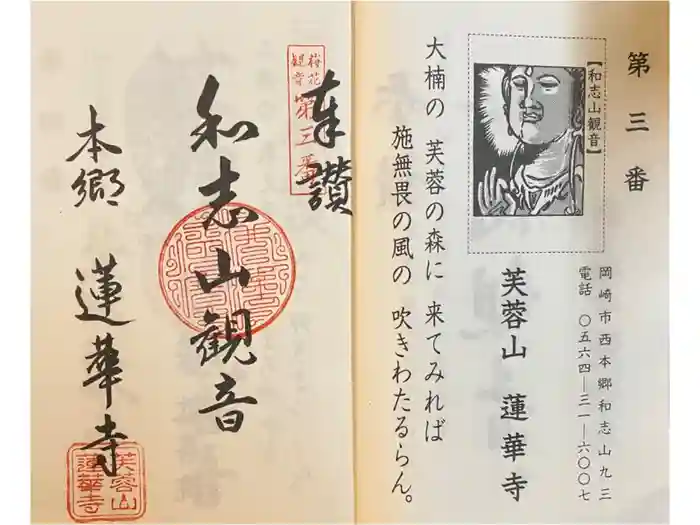 第三番
【和志山観音】
岡崎市西本郷和志山九三
電話 〇五六四―三一―六〇〇七
芙蓉山 蓮華寺
大楠の 芙蓉の森に 来てみれば
施無畏の風の 吹きわたるらん。
梅花
観音
第三番
奉讃
和志山観音
本郷 蓮華寺
芙蓉山
蓮華寺